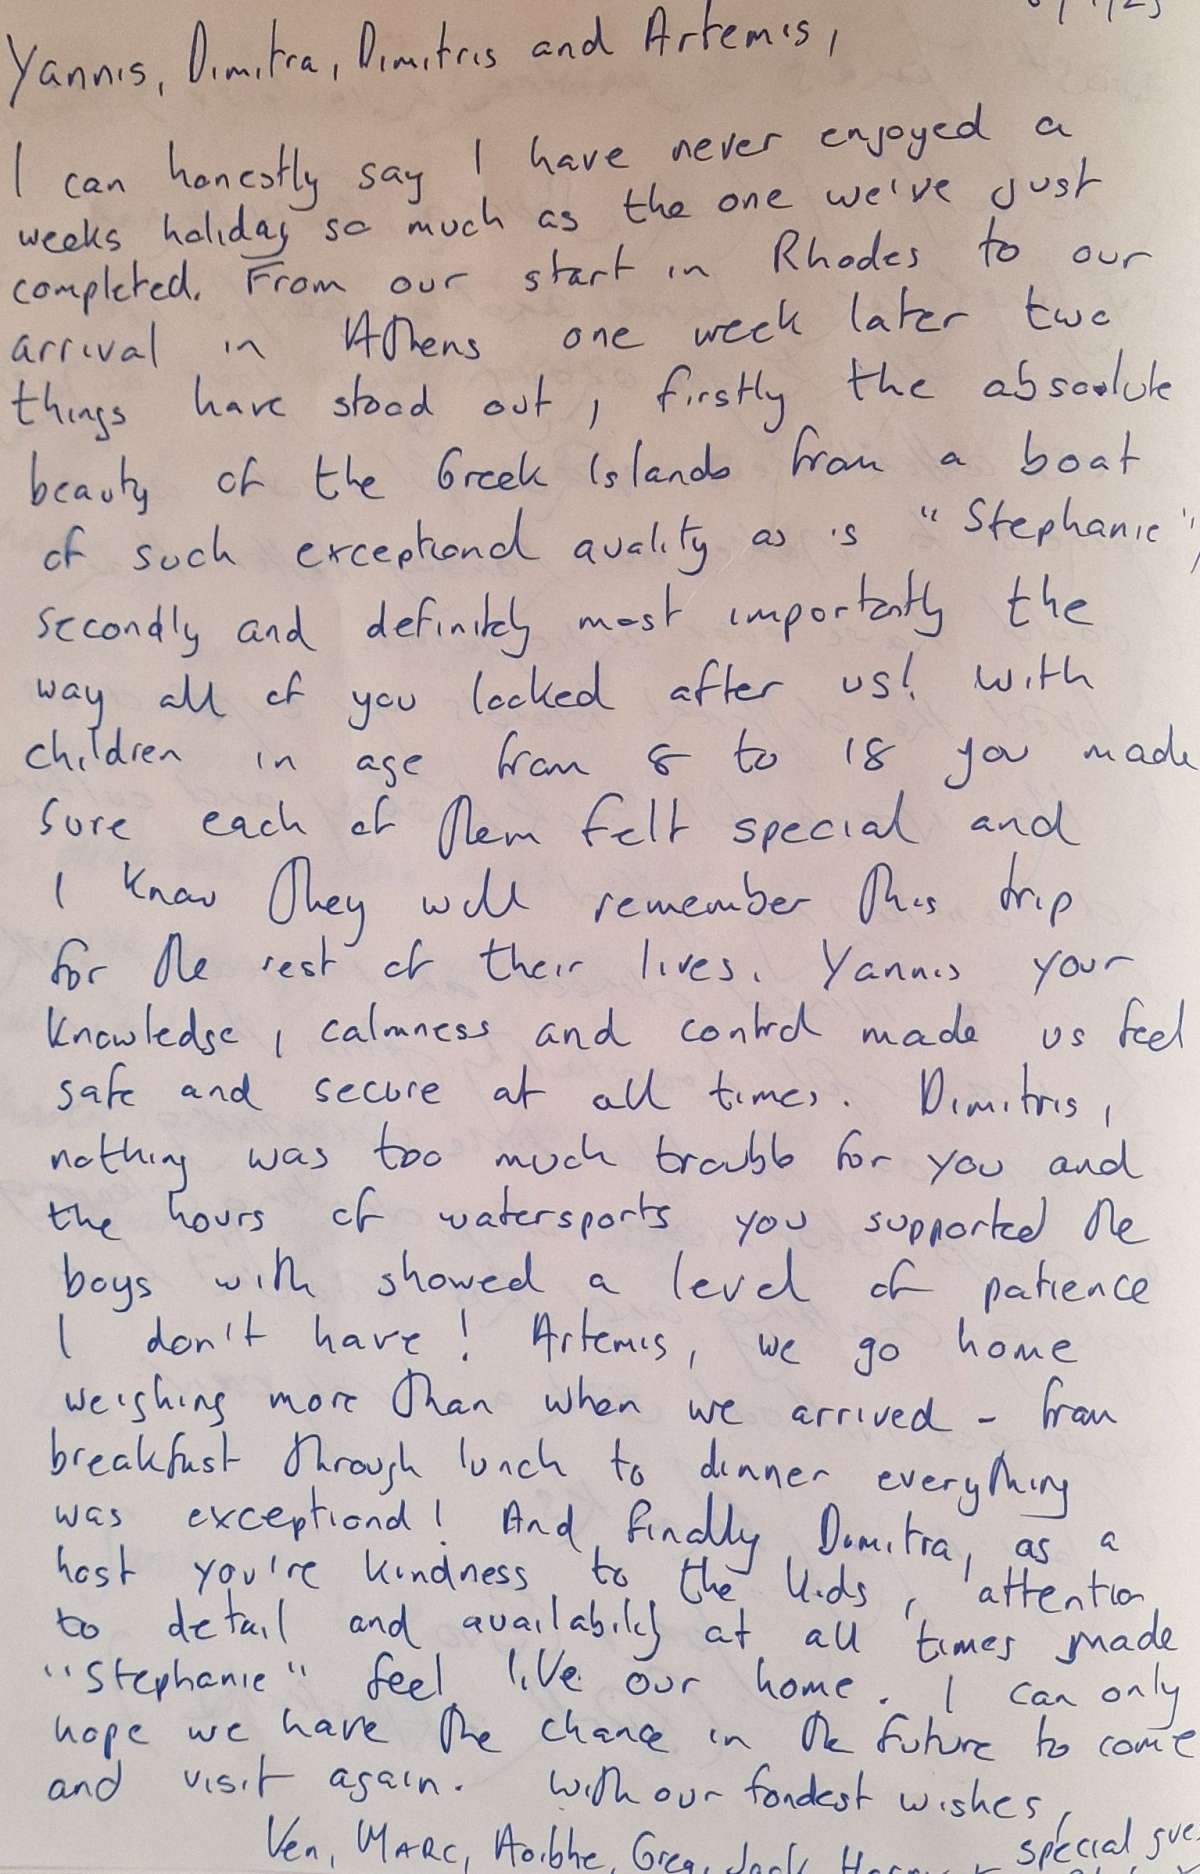 Yannis, Dimitra, Dimitris and Artemis,
I can honestly say I have never enjoyed a
weeks holiday so much as the one we've just
completed. From our start in Rhodes to our
arrival in Athens one week later two
things have stood out, firstly the absolute
beauty of the Greek Islands from a boat
of such exceptional quality as is "Stephanie",
secondly and definitely most importantly the
way all of you looked after us! With
children in age from 8 to 18 you made
sure each of them felt special and
I know they will remember this trip
for the rest of their lives. Yannis your
knowledge, calmness and control made us feel
safe and secure at all times. Dimitris,
nothing was too much trouble for you and
the hours of watersports you supported the
boys with showed a level of patience
I don't have! Artemis, we go home
weighing more than when we arrived - from
breakfast through lunch to dinner everything
was exceptional! And finally Dimitra, as a
host you're kindness to the kids, attention
to detail and availability at all times made
"Stephanie" feel like our home. I can only
hope we have the chance in the future to come
and visit again. With our fondest wishes,
Ven, MARC, Aoibhe, Greg, Jack, special